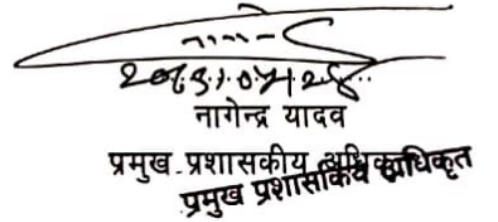 नागेन्द्र यादव
प्रमुख प्रशासकीय अधिकृत
प्रमुख प्रशासकिय अधिकृत